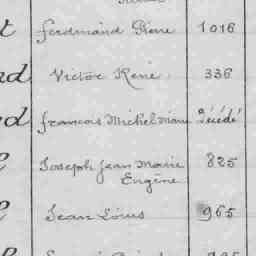 Ferdinand Pierre 1016
Victor René 336
François Michel Marie Décédé
Joseph Jean Marie 825
Eugène
Jean Louis 965